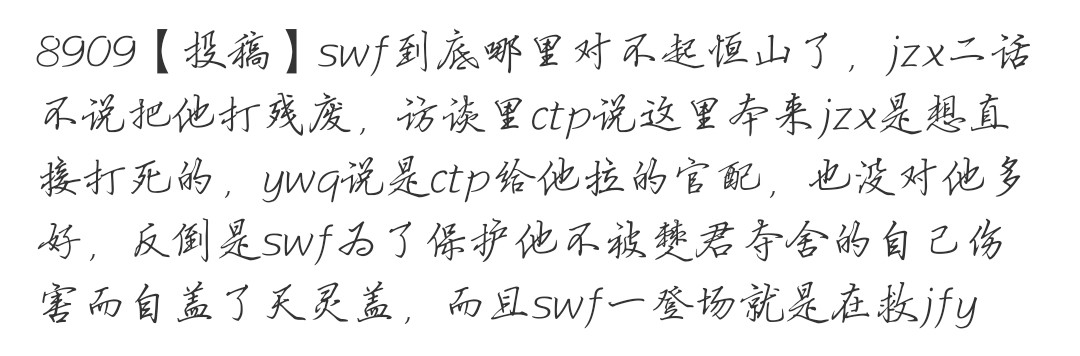 8909【投稿】swf到底哪里对不起恒山了，jzx二话
不说把他打残废，访谈里ctp说这里本来jzx是想直
接打死的，ywq说是ctp给他拉的官配，也没对他多
好，反倒是swf为了保护他不被楚君夺舍的自己伤
害而自盖了天灵盖，而且swf一登场就是在救jfy